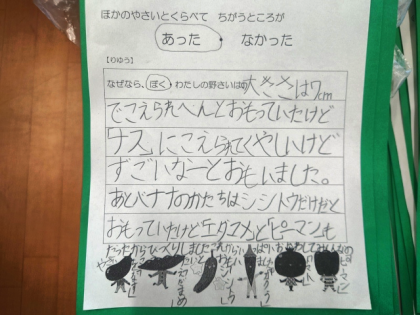 ほかのやさいとくらべて ちがうところが
あった ・ なかった
【りゆう】
なぜなら、ぼく・わたしの野さいは 大きさは7cm
でこえられへんとおもっていたけど
「ナス」にこえられてくやしいけど
すごいなーとおもいました。
あとバナナのかたちはシシトウだけだと
おもっていたけど「エダマメ」と「ピーマン」も
だったからびっくりしました